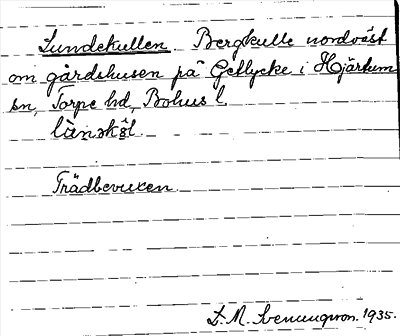 Lundekullen. Bergkulle nordväst
om gårdshusen på Getlycke i Hjärtum
sn, Torpe hd, Bohus l.
lànskə̂l.
Trädbevuxen.
S. M. Svenungsson. 1935.